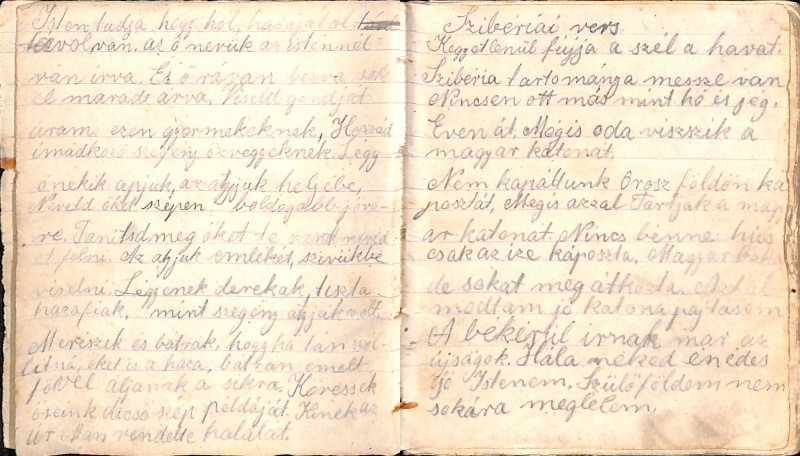 Isten tudja hogy hol, hazájától
távol van. az ő nevük az Istennél
van irva. És ő rájuk bezva sok
el maradt árva. Viseld gondját
uram ezen gyermekeknek, Hozzád
imádkozó szegény özvegyeknek. Légy
önekik apjuk, az apjuk helyébe,
Neveld őket szépen boldogabb jövő-
re. Tanitsd meg őket te szent neved
et félni. Az apjuk emlékét, szivükbe
viselni. Légyenek derekak, tiszta
hazafiak, mint szegény apjuk volt.
Merészek és bátrak. hogy ha tán szol-
litná, őket is a haza, bátran emelt
fővel áljanak a sikra. Kövessék
őseink dicső szép példáját. Kinek az
úr ottan rendelte halálát.
Szibériai vers
Kegyetlenül fujja a szél a havat.
Szibéria tartománya messze van
Nincsen ott más mint hó és jég.
Éven át, Mégis oda viszszik a
magyar katonát.
Nem kapáltunk Orosz földön ká
posztát, Mégis azzal Tartják a magy
ar katonát. Nincs benne hús
csak az ize káposzta. Magyar baka
de sokat meg átkozta. ezt ál
modtam jó katona pajtásom
A békérül irnak már az
újságok. Hála néked énédes
jó Istenem. Szülőföldem nem
sokára meglelem.